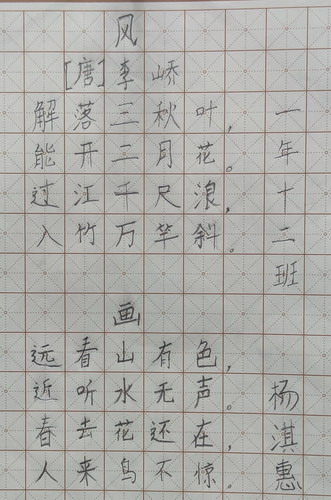 风
[唐]李峤
解落三秋叶，
能开二月花。
过江千尺浪，
入竹万竿斜。
画
远看山有色，
近听水无声。
春去花还在，
人来鸟不惊。
一年十三班
杨淇惠